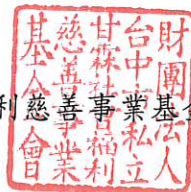 財團法人
台中市私立
甘霖社會福利
慈善事業
基金會
利慈善事業基